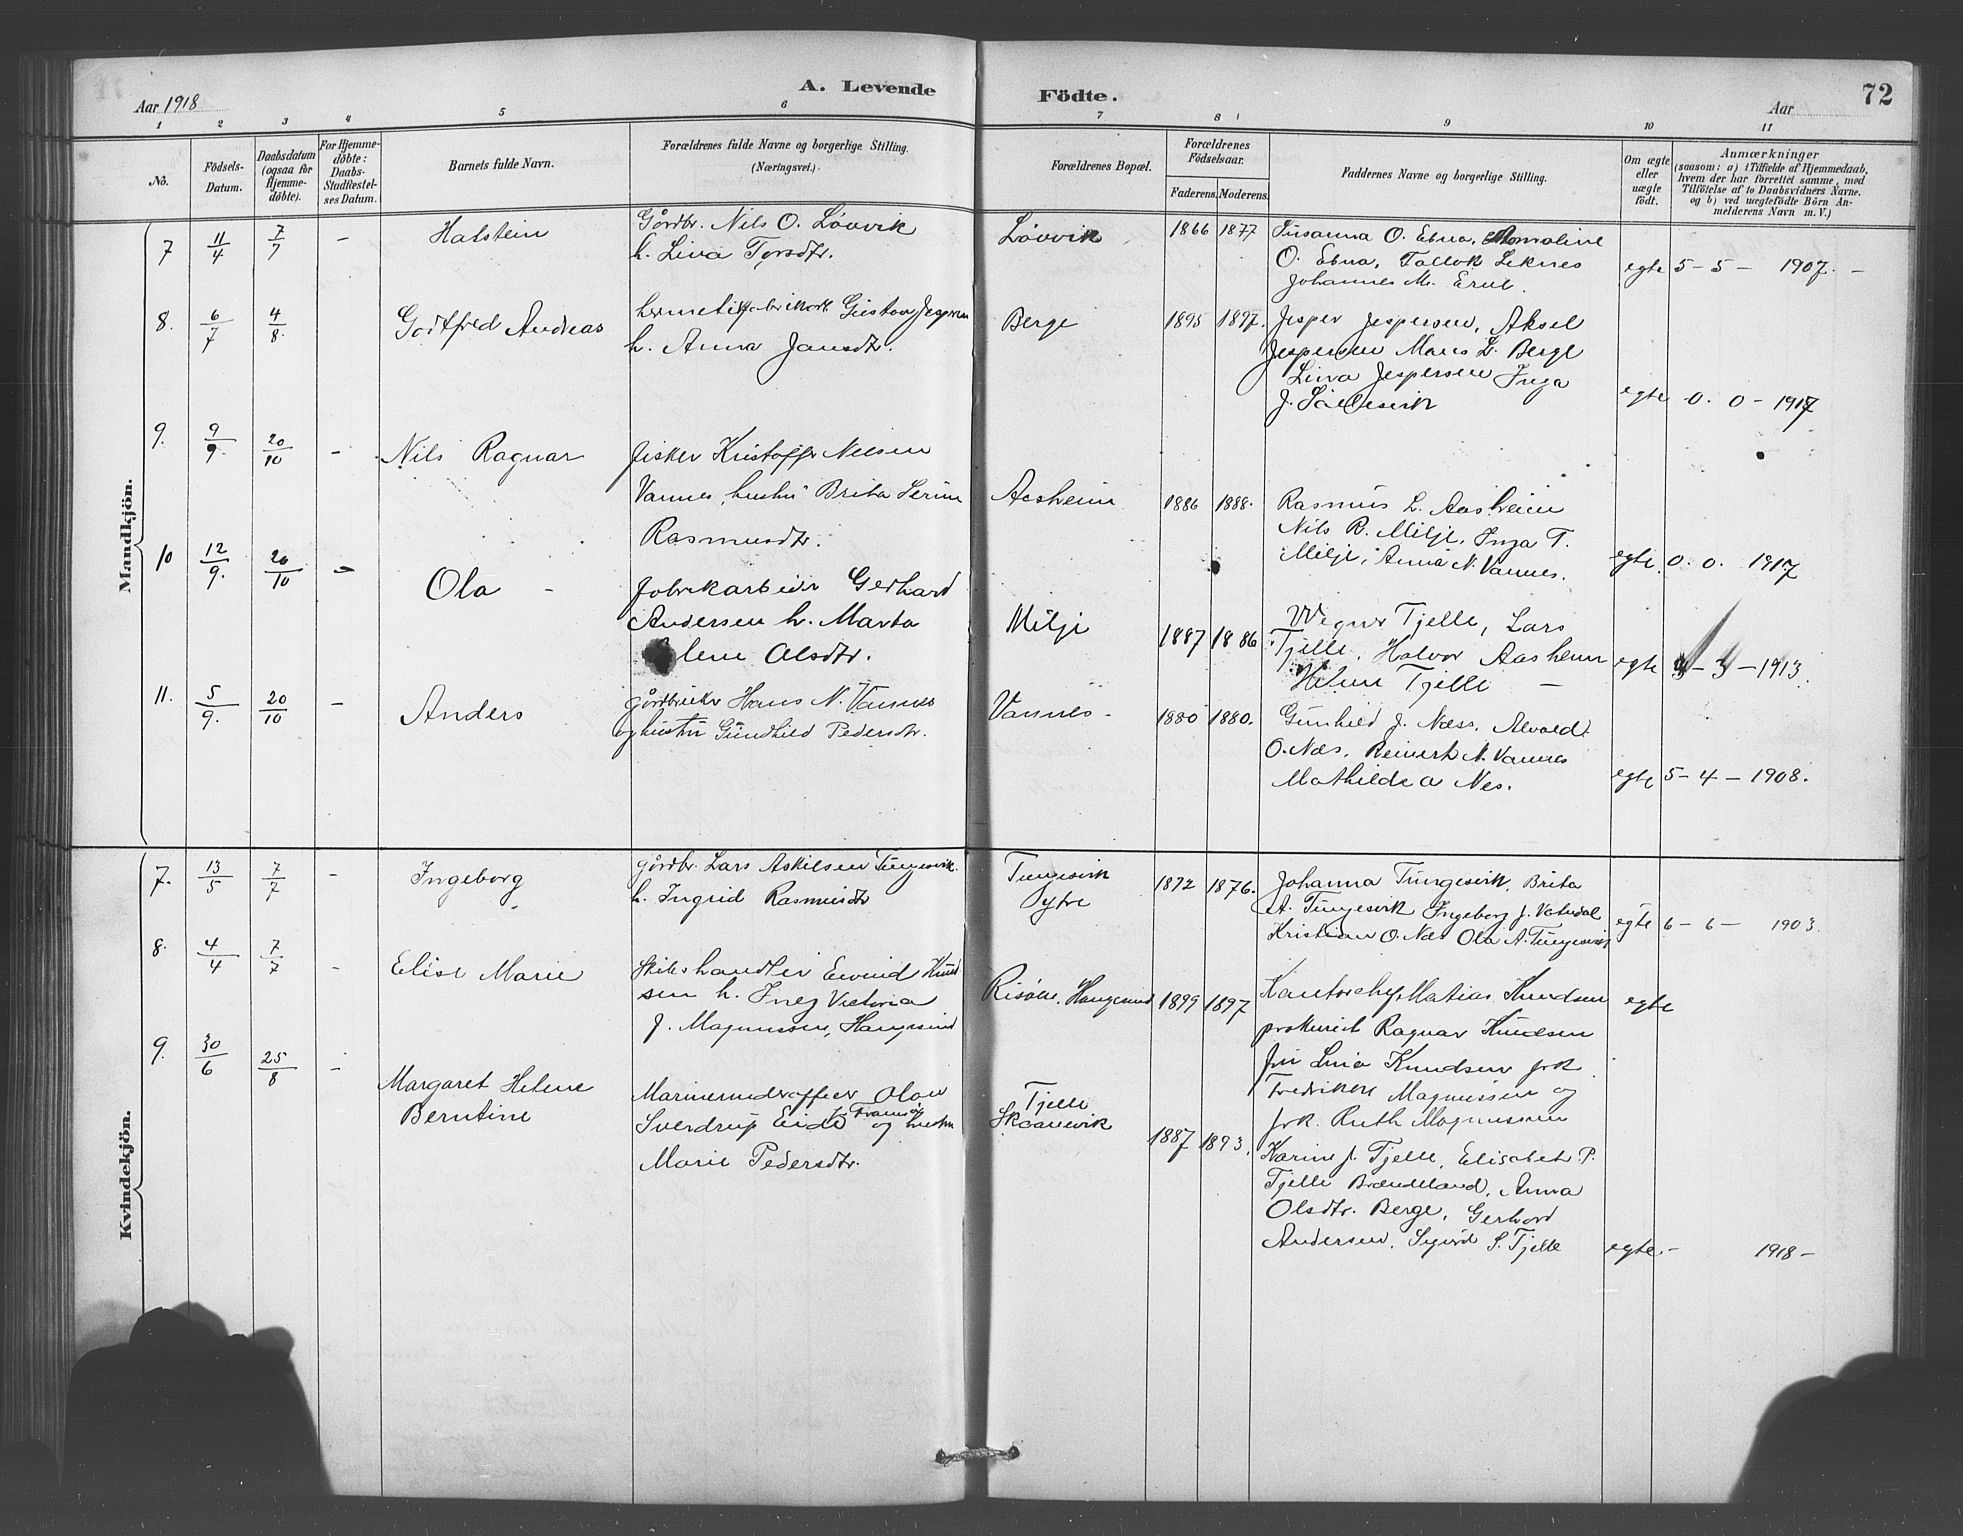 Aar 1918
A. Levende Födte.
Aar
72
1 2 3 4 5 6 7 8 9 10 11
No.
Födsels-Datum.
Daabsdatum (ogsaa for Hjemme-döbte).
For Hjemme-döbte: Daabs-Stadfestel-ses Datum.
Barnets fulde Navn.
Forældrenes fulde Navne og borgerlige Stilling.
(Næringsvei.)
Forældrenes Bopæl.
Forældrenes Födselsaar.
Faderens. Moderens.
Faddernes Navne og borgerlige Stilling.
Om ægte eller uægte födt.
Anmærkninger
(saasom: a) i Tilfælde af Hjemmedaab,
hvem der har forrettet samme, med
Tilföielse af to Daabsvidners Navne.
og b) ved uægtefödte Börn An-
melderens Navn m. V.)
Mandkjön.
7 11/4 7/7 - Halstein
Gårdbr. Nils O. Løvvik
h. Lina Torsdtr.
Løvvik 1866 1877
Susanna O. Ebna,
O. Ebna, Tallok Leknes
Johannes M.
egte 5-5- 1907. -
8. 6/7 4/8. Godtfred Andreas
hermetikfabrikarb. Gustav Jespersen
h. Anna Jansdtr.
Berge 1895 1897.
Jesper Jespersen, Aksel
Jespersen Mons L. Berge
Lina Jespersen Inga
J.
egte 0. 0 - 1917
9. 9/9. 20/10 - Nils Ragnar
fisker Kristoffer Nilsen
Vannes, hustru Brita Serine
Rasmusdtr.
Aasheim 1886 1888.
Rasmus L. Aasheim
Nils R. Milje, Inga T.
Milje, Anna N. Vannes.
egte. 0. 0. 1917
10 12/9. 20/10 - Ola -
Fabrikarbeider Gerhard
Andersen h. Marta
Elene Olsdtr.
Milje 1887 1886
Tjelle, Lars
Tjelle, Halvor Aasheim
Helene Tjelle -
egte 3-3-1913.
11. 5/9. 20/10 - Anders
gårdbruker Hans N. Vannes
og hustru Gundhild Pedersdtr.
Vannes - 1880 1880.
Gunhild J. Næss, Alvald
O. Næs, Reinert N. Vannes
Mathilde A Nes.
egte 5-4-1908.
Kvindekjön.
7. 13/5 7/7 - Ingeborg
gårdbr. Lars Askilsen Tungesvik.
h. Ingrid Rasmusdtr
Tungesvik
ytre
1872 1876.
Johanna Tungesvik, Brita
A. Tungesvik Ingeborg J. Vatndal
Kristian O. Næs Ola A. Tungesvik
egte 6-6- 1903.
8. 4/4 7/7 - Elise Marie
Skibshandler Eivind Knud
sen h. Ineg Victoria
f. Magnussen, Haugesund
Risøen, Haugesund 1899 1897
Kontorchef Matias Knudsen
prokurist Ragnar Knudsen
fru Lina Knudsen frk.
Fredrikke Magnussen og
frk. Ruth Magnussen
egte
9. 30/6 25/8 - Margaret Helene
Berntine
Marineunderofficer Olav
Sverdrup Eide Framnes og hustru
Marie Pedersdtr.
Tjelle
Skaanevik
1887 1893.
Karine J. Tjelle, Elisabet P.
Tjelle Brændeland, Anna
Olsdtr. Berge, Gerhard
Andersen, Sigurd S. Tjelle
egte - 1918 -